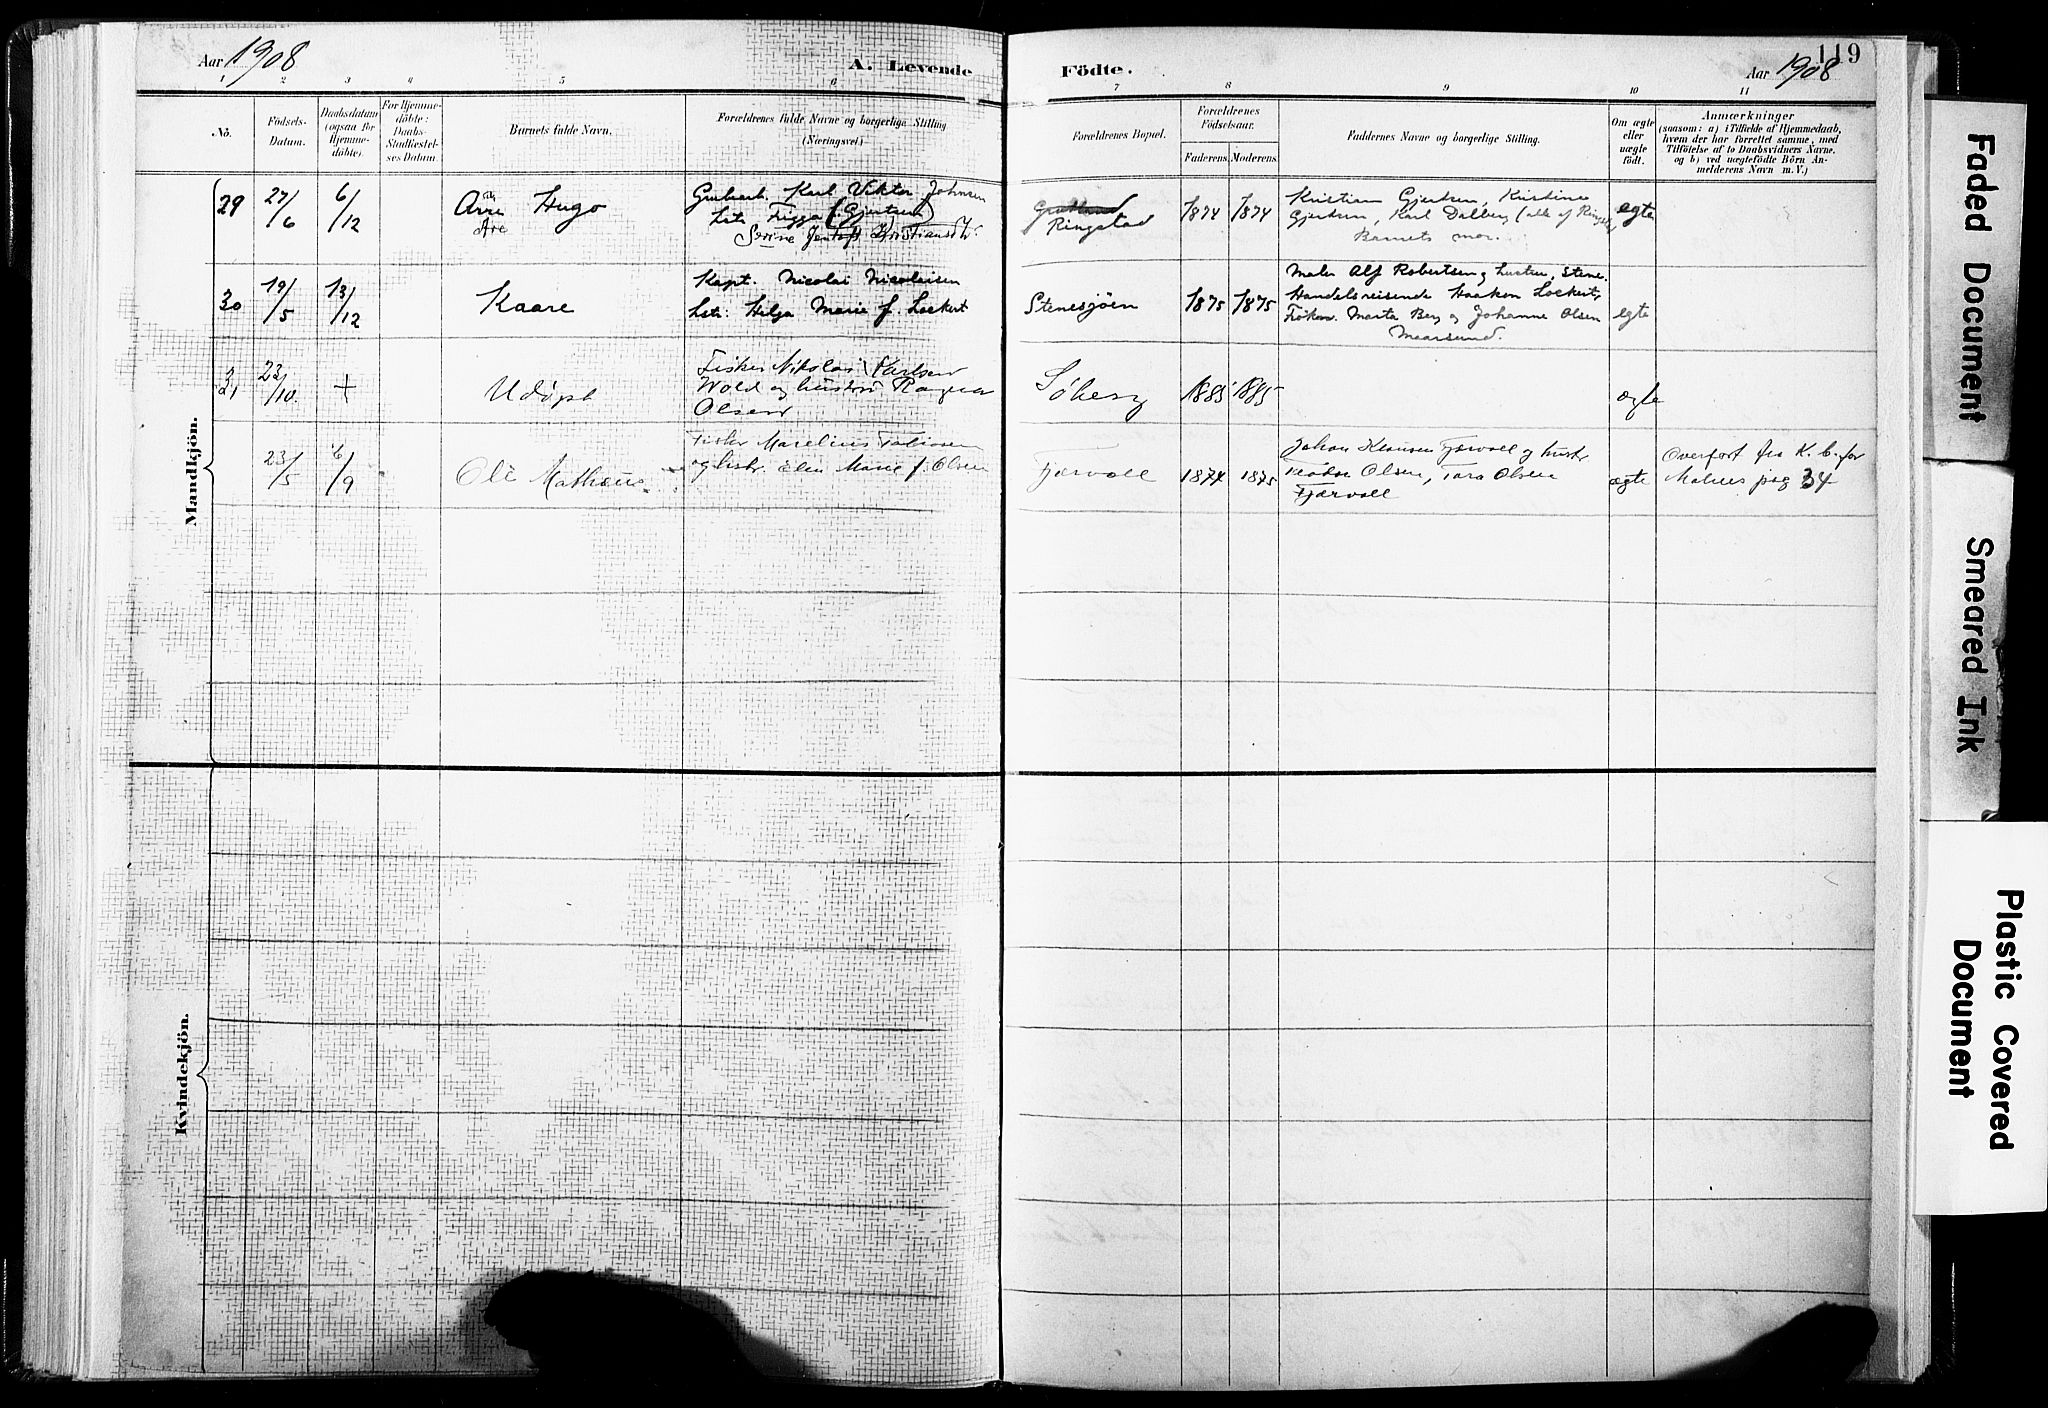 Aar 1908
A. Levende
Födte.
Aar 1908
119
1 2 3 4 5 6 7 8 9 10 11
Nô.
Födsels-
Datum.
Daabsdatum
(ogsaa for
Hjemme-
döbte).
For Hjemme-
döbte:
Daabs-
Stadfæstel-
ses Datum.
Barnets fulde Navn.
Forældrenes fulde Navne og borgerlige Stilling
(Næringsvei)
Forældrenes Bopæl.
Forældrenes
Födselsaar.
Faderens. Moderens.
Faddernes Navne og borgerlige Stilling.
Om ægte
eller
uægte
født.
Anmærkninger
(saasom: a) i Tilfælde af Hjemmedaab,
hvem der har forrettet samme, med
Tilföielse af to Daabsvidners Navne,
og b) ved uægtefödte Börn An-
melderens Navn m. V.)
Mandkjön.
29
27/6
6/12
Arne Hugo
Are
Karl Viktor Johnsen
Frigga f. Gjertsen
Ringstad
1874 1874
Kristian Gjertsen, Kristine
Gjertsen, Karl Dalberg (alle af
Barnets mor.
egte
30
19/5
13/12
Kaare
Kapt. Nicolai Nicolaisen
Helga Marie f. Lockert
Stenesjøen
1875 1875
Maler Alf Robertsen og hustru, Stene.
Handelsreisende Haakon Lockert,
Frøken Marta Berg og Johanne Olsen
egte
31
23/10
+
Udøpt
Fisker Nikolai Karlsen
Wold og hustru Ragna
Olsen
Söberg
1885 1885
ægte
23/5
6/9
Ole Matheus
Fisker Marelius Tobiassen
og hstr. Elen Marie f. Olsen
Fjærvoll
1874 1875
Johan Klausen Fjærvoll og hustr
Olsen, Tora Olsen
Fjærvoll
ægte
Overført fra K. b. for
Malnes pag 34
Kvindekjön.
Faded Document
Smeared Ink
Plastic Covered
Document